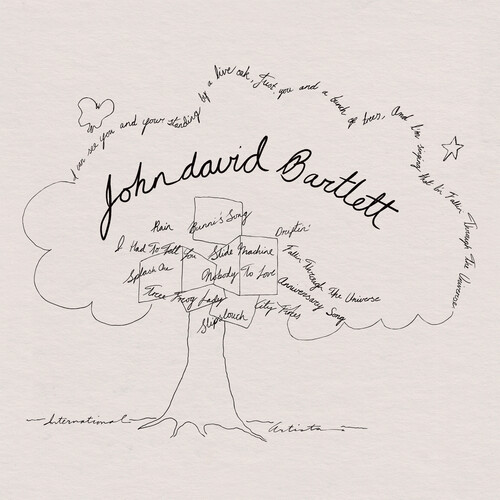 I can see you and your standing by a live oak, Just you and a bunch of trees, And I'm singing that I'm Fallin Through The Universe.
Johndavid Bartlett
Rain
Bunni's Song
Driftin'
I Had To Tell You
Slide Machine
Fallin Through The Universe
Splash One
Nobody To Love
Anniversary Song
Three Frog Lady
City Fires
Slipslouch
International Artists